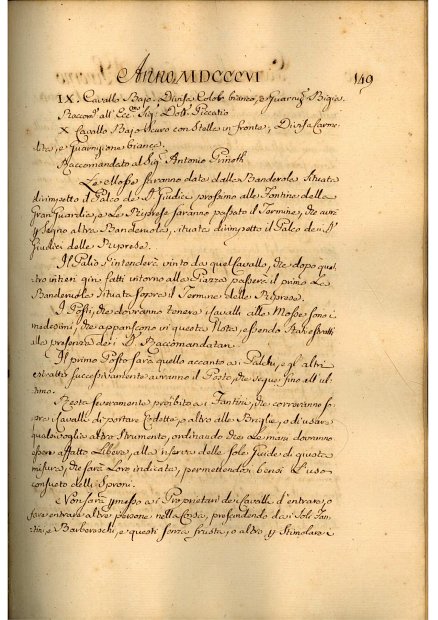 Anno MDCCCVI
149
IX. Cavallo Bajo. Divisa Colob. bianco, e Guarniz. Bigia.
Raccom. all' Ecc. Sig. Dott. Piccatio
X Cavallo Bajo scuro con Stella in fronte; Divisa Carme-
lita, e Guarnizione bianca.
Raccomandato al Sig. Antonio
Le Mosse saranno date dalla Banderola Situata
dirimpetto il Palco de' SS. Giudici prossimo alle Fontine della
Gran Guardia, e Le Riprese saranno passato il Termine, che avrà
p Segno altra Banderuola, situata dirimpetto il Palco dei SS.
Giudici delle Riprese.
Il Palio s'intenderà vinto da quel Cavallo, che dopo quat-
tro intieri giri fatti intorno alla Piazza passerà il primo La
Banderuola Situata sopra il Termine delle Riprese.
I Posti, che dovranno tenere i Cavalli alle Mosse sono i
medesimi, che appariscono in questa Nota, essendo Stati estratti
alla presenza dei SS. Raccomandatari
Il primo Posto sarà quello accanto ai Palchi, e gl' altri
estratti successivamente avranno il Posto, che segue fino all' ul-
timo.
Resta severamente proibito ai Fantini, che correranno so-
pra i Cavalli di portare Cordette, o altro alle Briglie, o di usare
qualsivoglia altro Strumento, ordinando che Le mani dovranno
essere affatto Libere, alla riserva delle Sole Guide di quella
misura, che sarà Loro indicata, permettendosi bensì L'uso
consueto delli Sproni.
Non sarà pmesso ai Proprietari dei Cavalli d'entrare, o
fare entrare altre persone nella Corsa, prescindendo dai Soli Fan-
tini, e Barbereschi, e questi senza frusta, o altro p Stimolare i